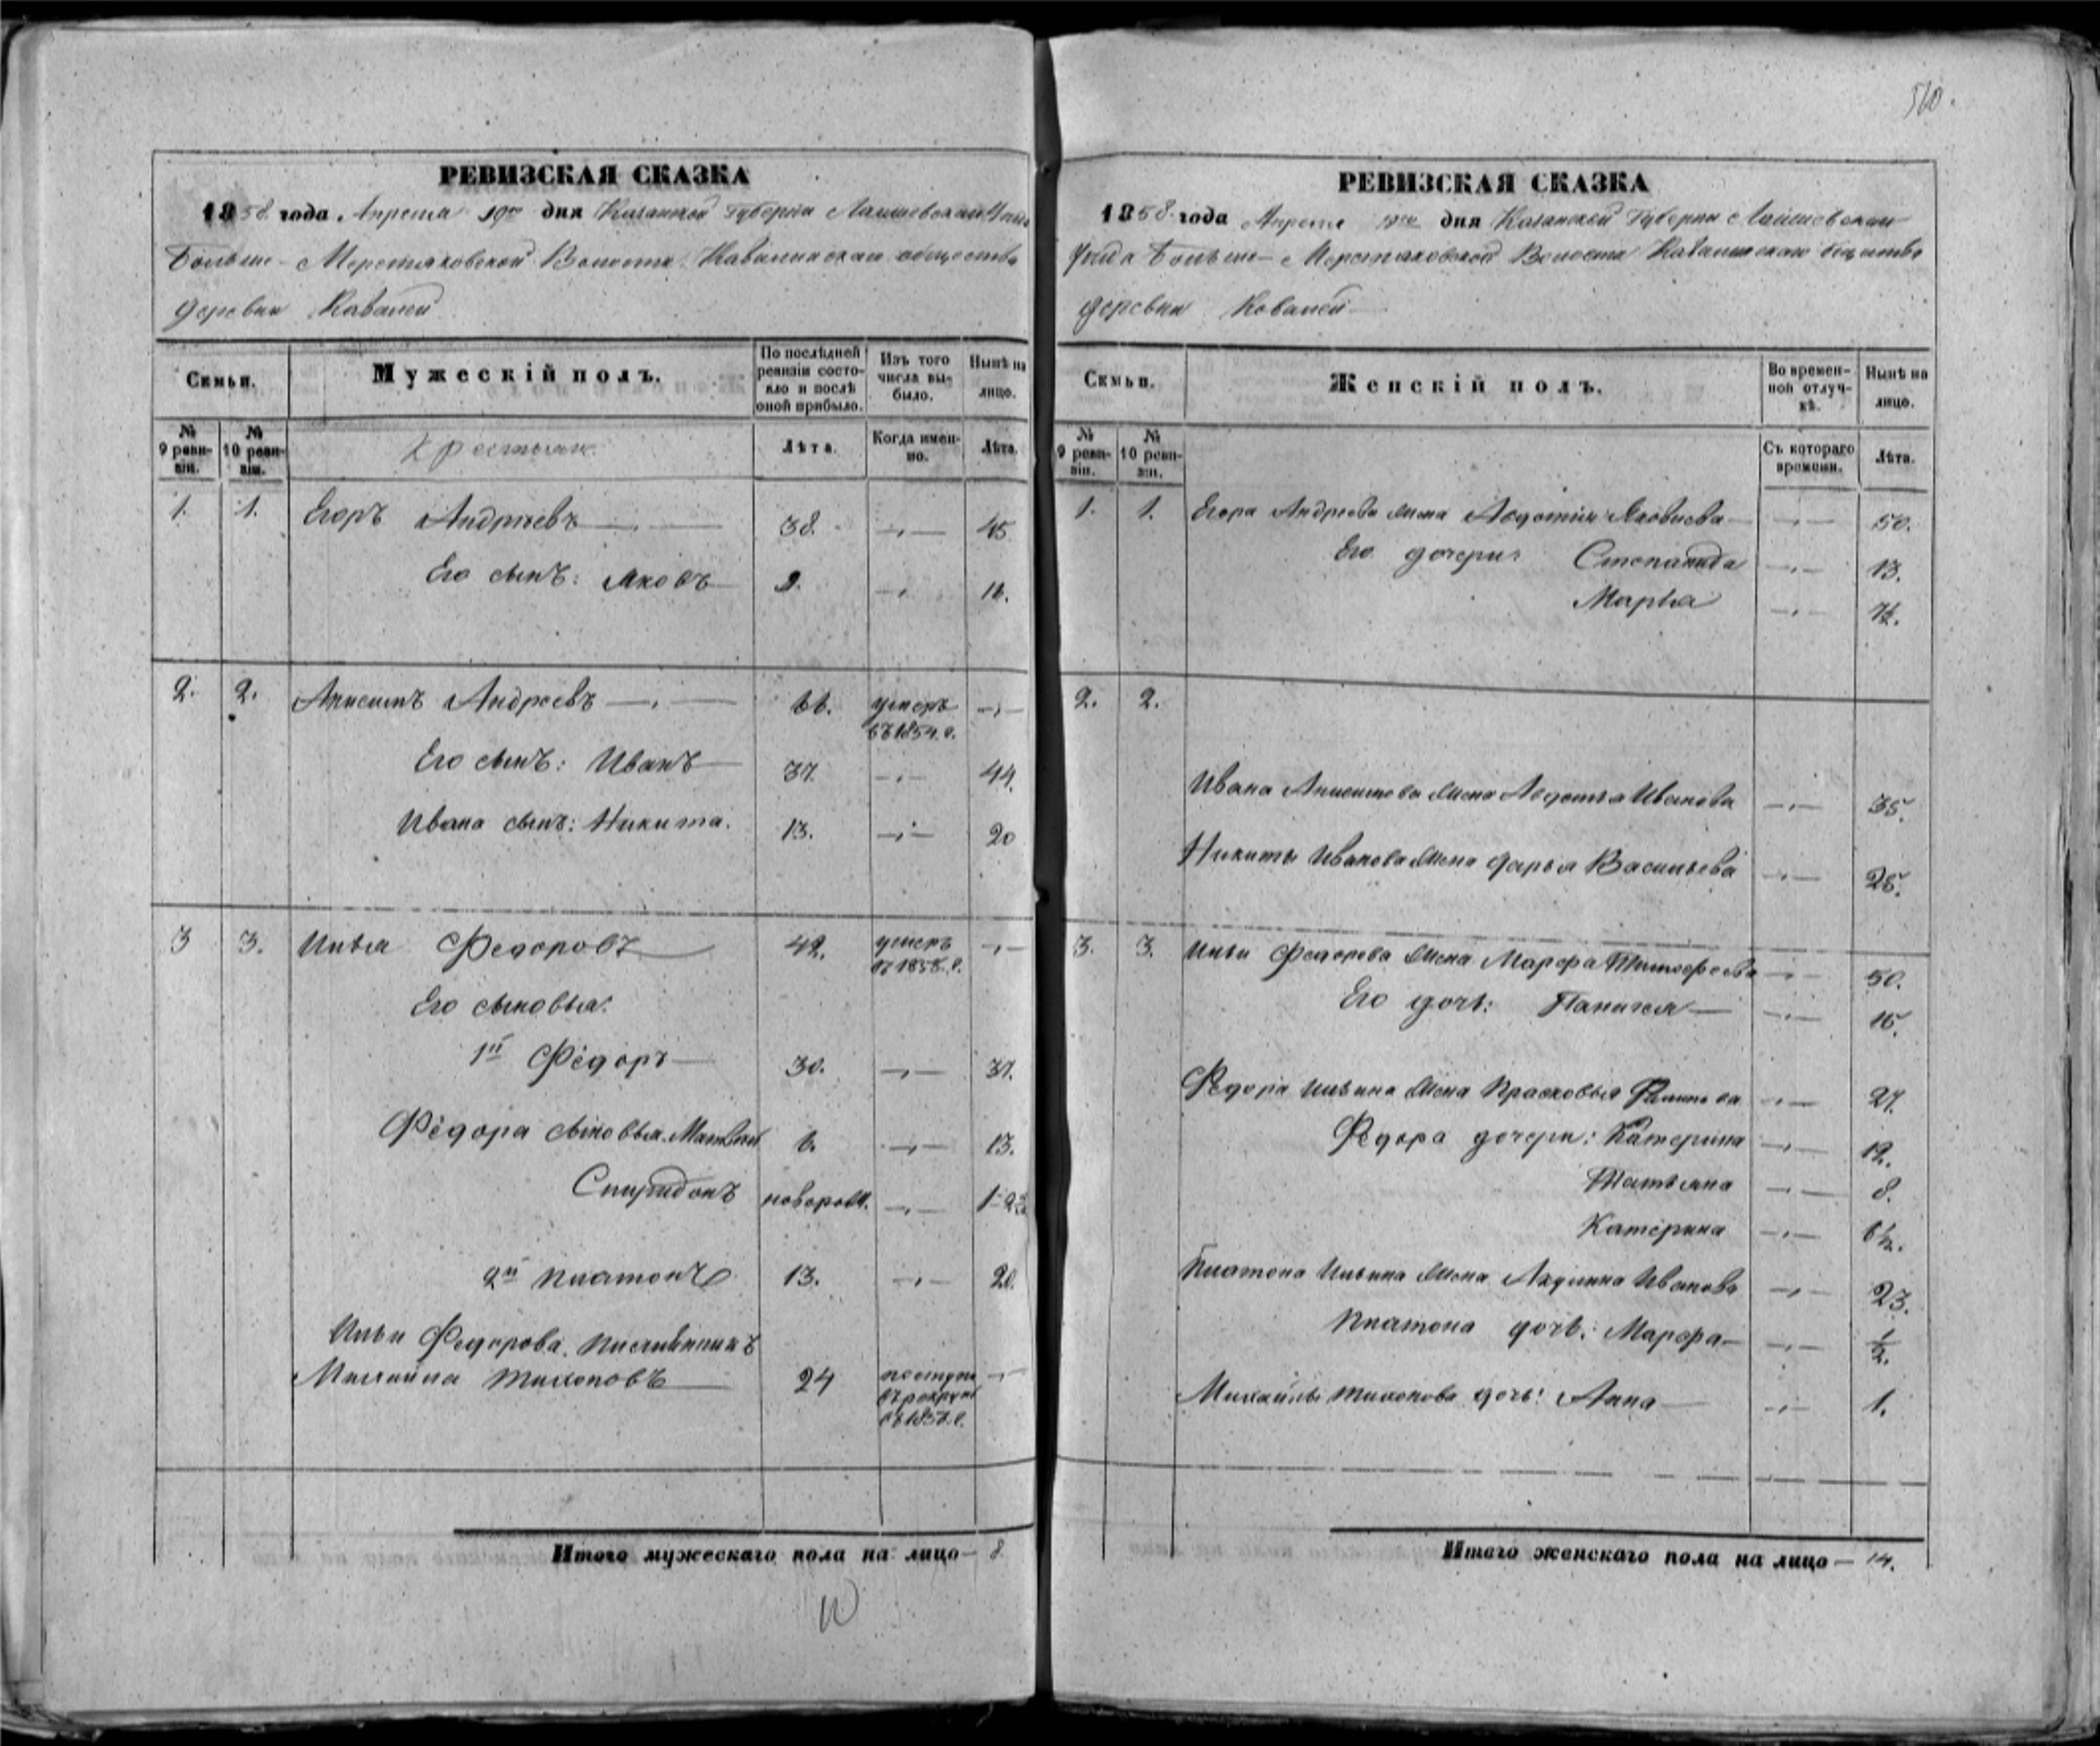 510.
РЕВИЗСКАЯ СКАЗКА
1858 года Апреля 19го дня Казанской Губерніи Лаишевскаго
Больше-Меретяковской Волости Кавалинскаго общества
деревни Кавалей
Семьи.
Мужескій полъ.
По послѣдней ревизіи состояло и послѣ оной прибыло.
Изъ того числа выбыло.
Нынѣ на лицо.
№ 9 ревизіи.
№ 10 ревизіи.
Крестьяне
Лѣта.
Когда именно.
Лѣта.
1. 1. Егоръ Андреевъ 38. 45
Его сынъ: Яковъ 9.
2. 2. Анисимъ Андреевъ 66. умеръ въ 1854. г.
Его сынъ: Иванъ 37. 44.
Ивана сынъ: Никита. 13. 20
3 3. Илья Федоровъ 42. умеръ
Его сыновья:
1й Фёдоръ 30. 37.
Фёдора сыновья: Матвей 6. 13.
Спиридонъ новорож.
2й Платонъ 13. 20.
Ильи Федорова племянникъ
Михайла Тихоновъ 24 поступи въ рекруты
Итого мужескаго пола на лицо — 8.
10
РЕВИЗСКАЯ СКАЗКА
1858 года Апреля 19го дня Казанской Губерніи Лаишевскаго
уѣзда Больше-Меретяковской Волости Кавалинскаго общества
деревни Ковалей
Семьи.
Женскій полъ.
Во временной отлучкѣ.
Нынѣ на лицо.
№ 9 ревизіи.
№ 10 ревизіи.
Съ котораго времени.
Лѣта.
1. 1. Егора Андреева жена Авдотья Яковлева 50.
Его дочери: Степанида 13.
Марья
2. 2.
Ивана Анисимова жена Авдотья Иванова 35.
Никиты Иванова жена Дарья Васильева 25.
3. 3. Ильи Федорова жена Марфа Тимофеева 50.
Его дочь: 15.
Федора Ильина жена Прасковья 27.
Федора дочери: Катерина 12.
Татьяна 8.
Катерина 6½.
Платона Ильина жена Акулина Иванова 23.
Платона дочь: Марфа ½.
Михайлы Тихонова дочь: Анна 1.
Итого женскаго пола на лицо — 14.